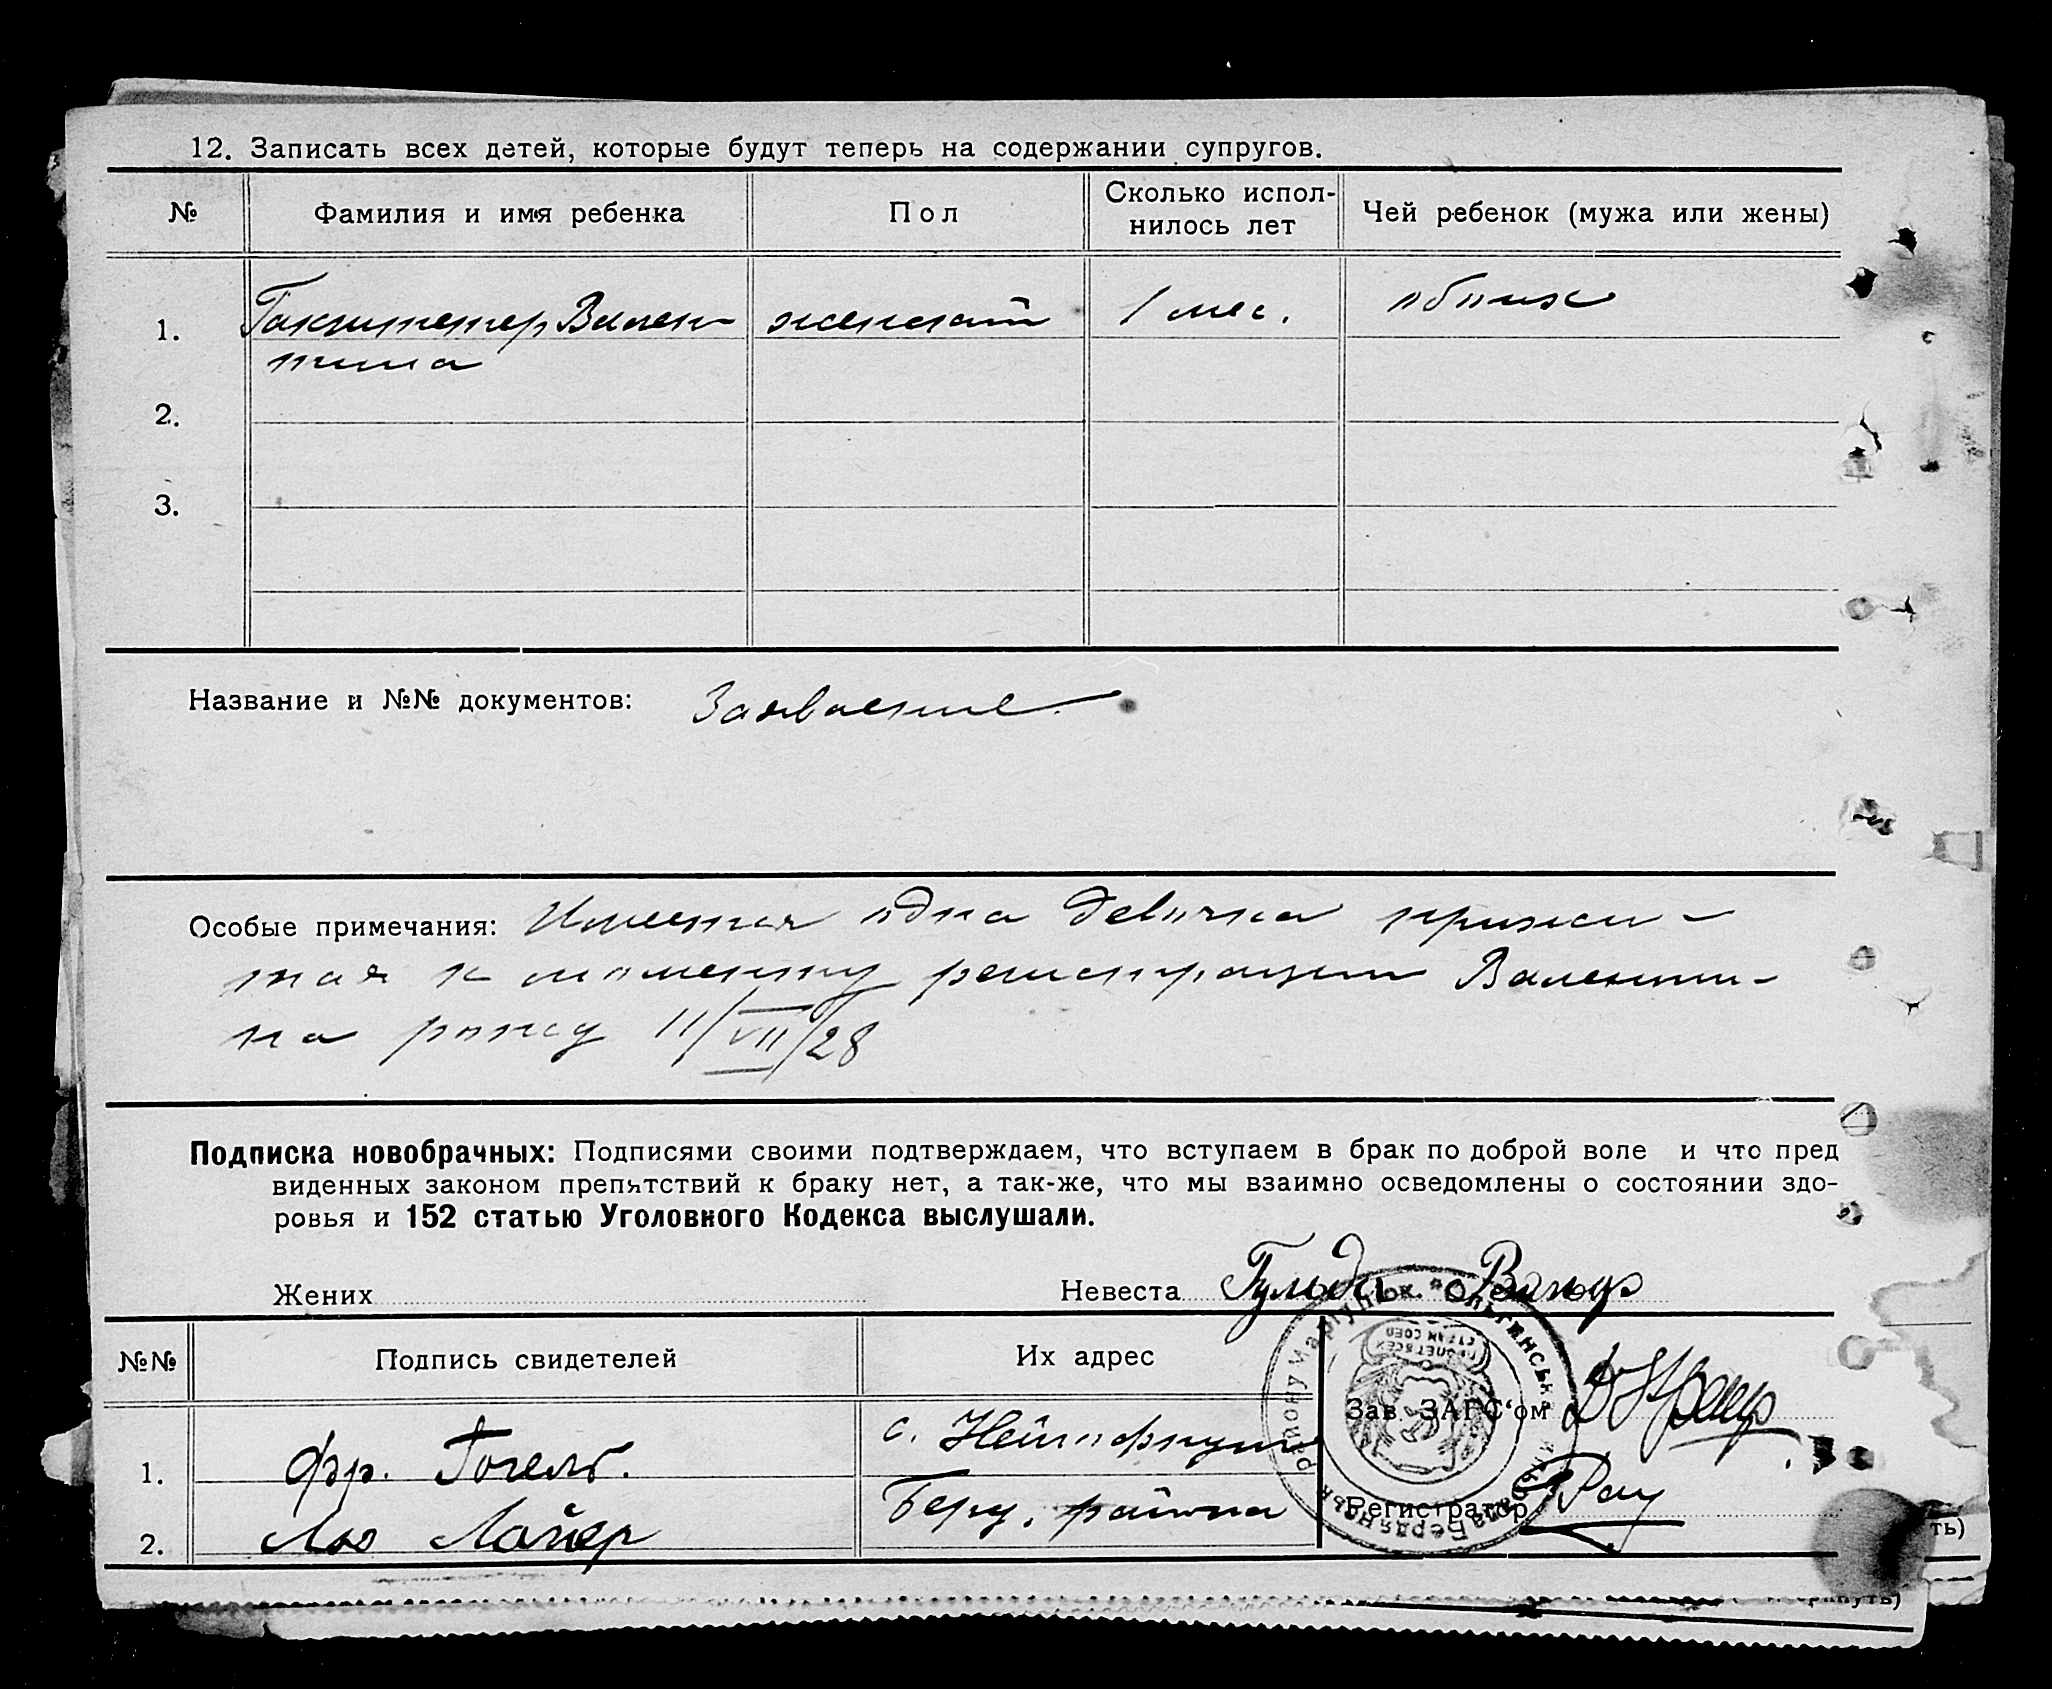 12. Записать всех детей, которые будут теперь на содержании супругов.
№ Фамилия и имя ребенка Пол Сколько испол- Чей ребенок (мужа или жены)
нилось лет
1. Вален- женский 1 мес. обоих
тина
2.
3.
Название и №№ документов: Заявление
Особые примечания: Имеется одна девочка прижи-
тая к моменту регистрации Валенти-
на рожд 11/VII/28
Подписка новобрачных: Подписями своими подтверждаем, что вступаем в брак по доброй воле и что пред
виденных законом препятствий к браку нет, а так-же, что мы взаимно осведомлены о состоянии здо-
ровья и 152 статью Уголовного Кодекса выслушали.
Жених Невеста Гульда
№№ Подпись свидетелей Их адрес
Зав. ЗАГС'ом
1. Фр. Гогель. с.
Регистратор Рау
2. Лео Майер Берд. района
ть)